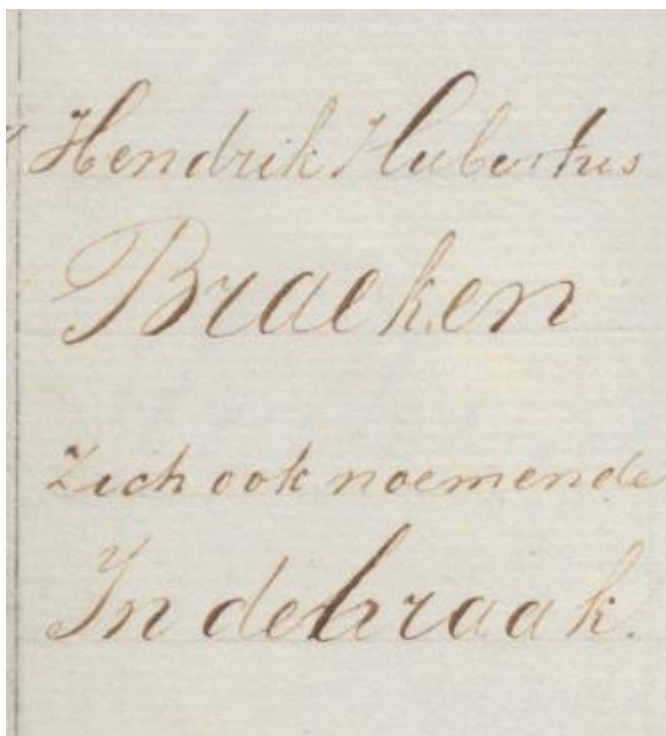 Hendrik Hubertus
Braeken
Zich ook noemende
In debraak.